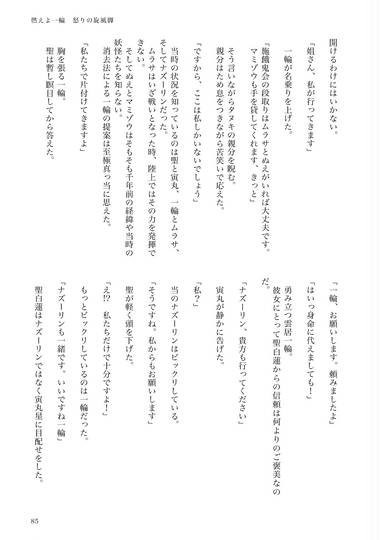 燃えよ一輪　怒りの旋風脚
開けるわけにはいかない。
「姐さん、私が行ってきます」
一輪が名乗りを上げた。
「施餓鬼会の段取りはムラサとぬえがいれば大丈夫です。
マミゾウも手を貸してくれます、きっと」
そう言いながらタヌキの親分を睨む。
親分はため息をつきながら苦笑いで応えた。
「ですから、ここは私しかいないでしょう」
当時の状況を知っているのは聖と寅丸、一輪とムラサ、
そしてナズーリンだった。
ムラサはいざ戦いとなった時、陸上ではその力を発揮で
きない。
そしてぬえとマミゾウはそもそも千年前の経緯や当時の
妖怪たちを知らない。
消去法による一輪の提案は至極真っ当に思えた。
「私たちで片付けてきますよ」
胸を張る一輪。
聖は暫し瞑目してから答えた。
「一輪、お願いします。頼みましたよ」
「はいっ身命に代えましても！」
勇み立つ雲居一輪。
彼女にとって聖白蓮からの信頼は何よりのご褒美なの
だ。
「ナズーリン、貴方も行ってください」
寅丸が静かに告げた。
「私？」
当のナズーリンはビックリしている。
「そうですね。私からもお願いします」
聖が軽く頭を下げた。
「え!?　私たちだけで十分ですよ！」
もっとビックリしているのは一輪だった。
「ナズーリンも一緒です。いいですね一輪」
聖白蓮はナズーリンではなく寅丸星に目配せをした。
85